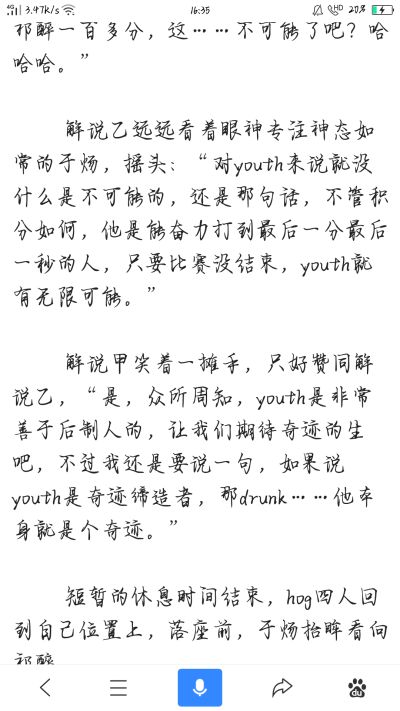 3.47K/s
16:35
HD
20%
祁醉一百多分，这……不可能了吧？哈
哈哈。”
解说乙远远看着眼神专注神态如
常的于炀，摇头：“对youth来说就没
什么是不可能的，还是那句话，不管积
分如何，他是能奋力打到最后一分最后
一秒的人，只要比赛没结束，youth就
有无限可能。”
解说甲笑着一摊手，只好赞同解
说乙，“是，众所周知，youth是非常
善于后制人的，让我们期待奇迹的生
吧，不过我还是要说一句，如果说
youth是奇迹缔造者，那drunk……他本
身就是个奇迹。”
短暂的休息时间结束，hog四人回
到自己位置上，落座前，于炀抬眸看向
祁醉
du